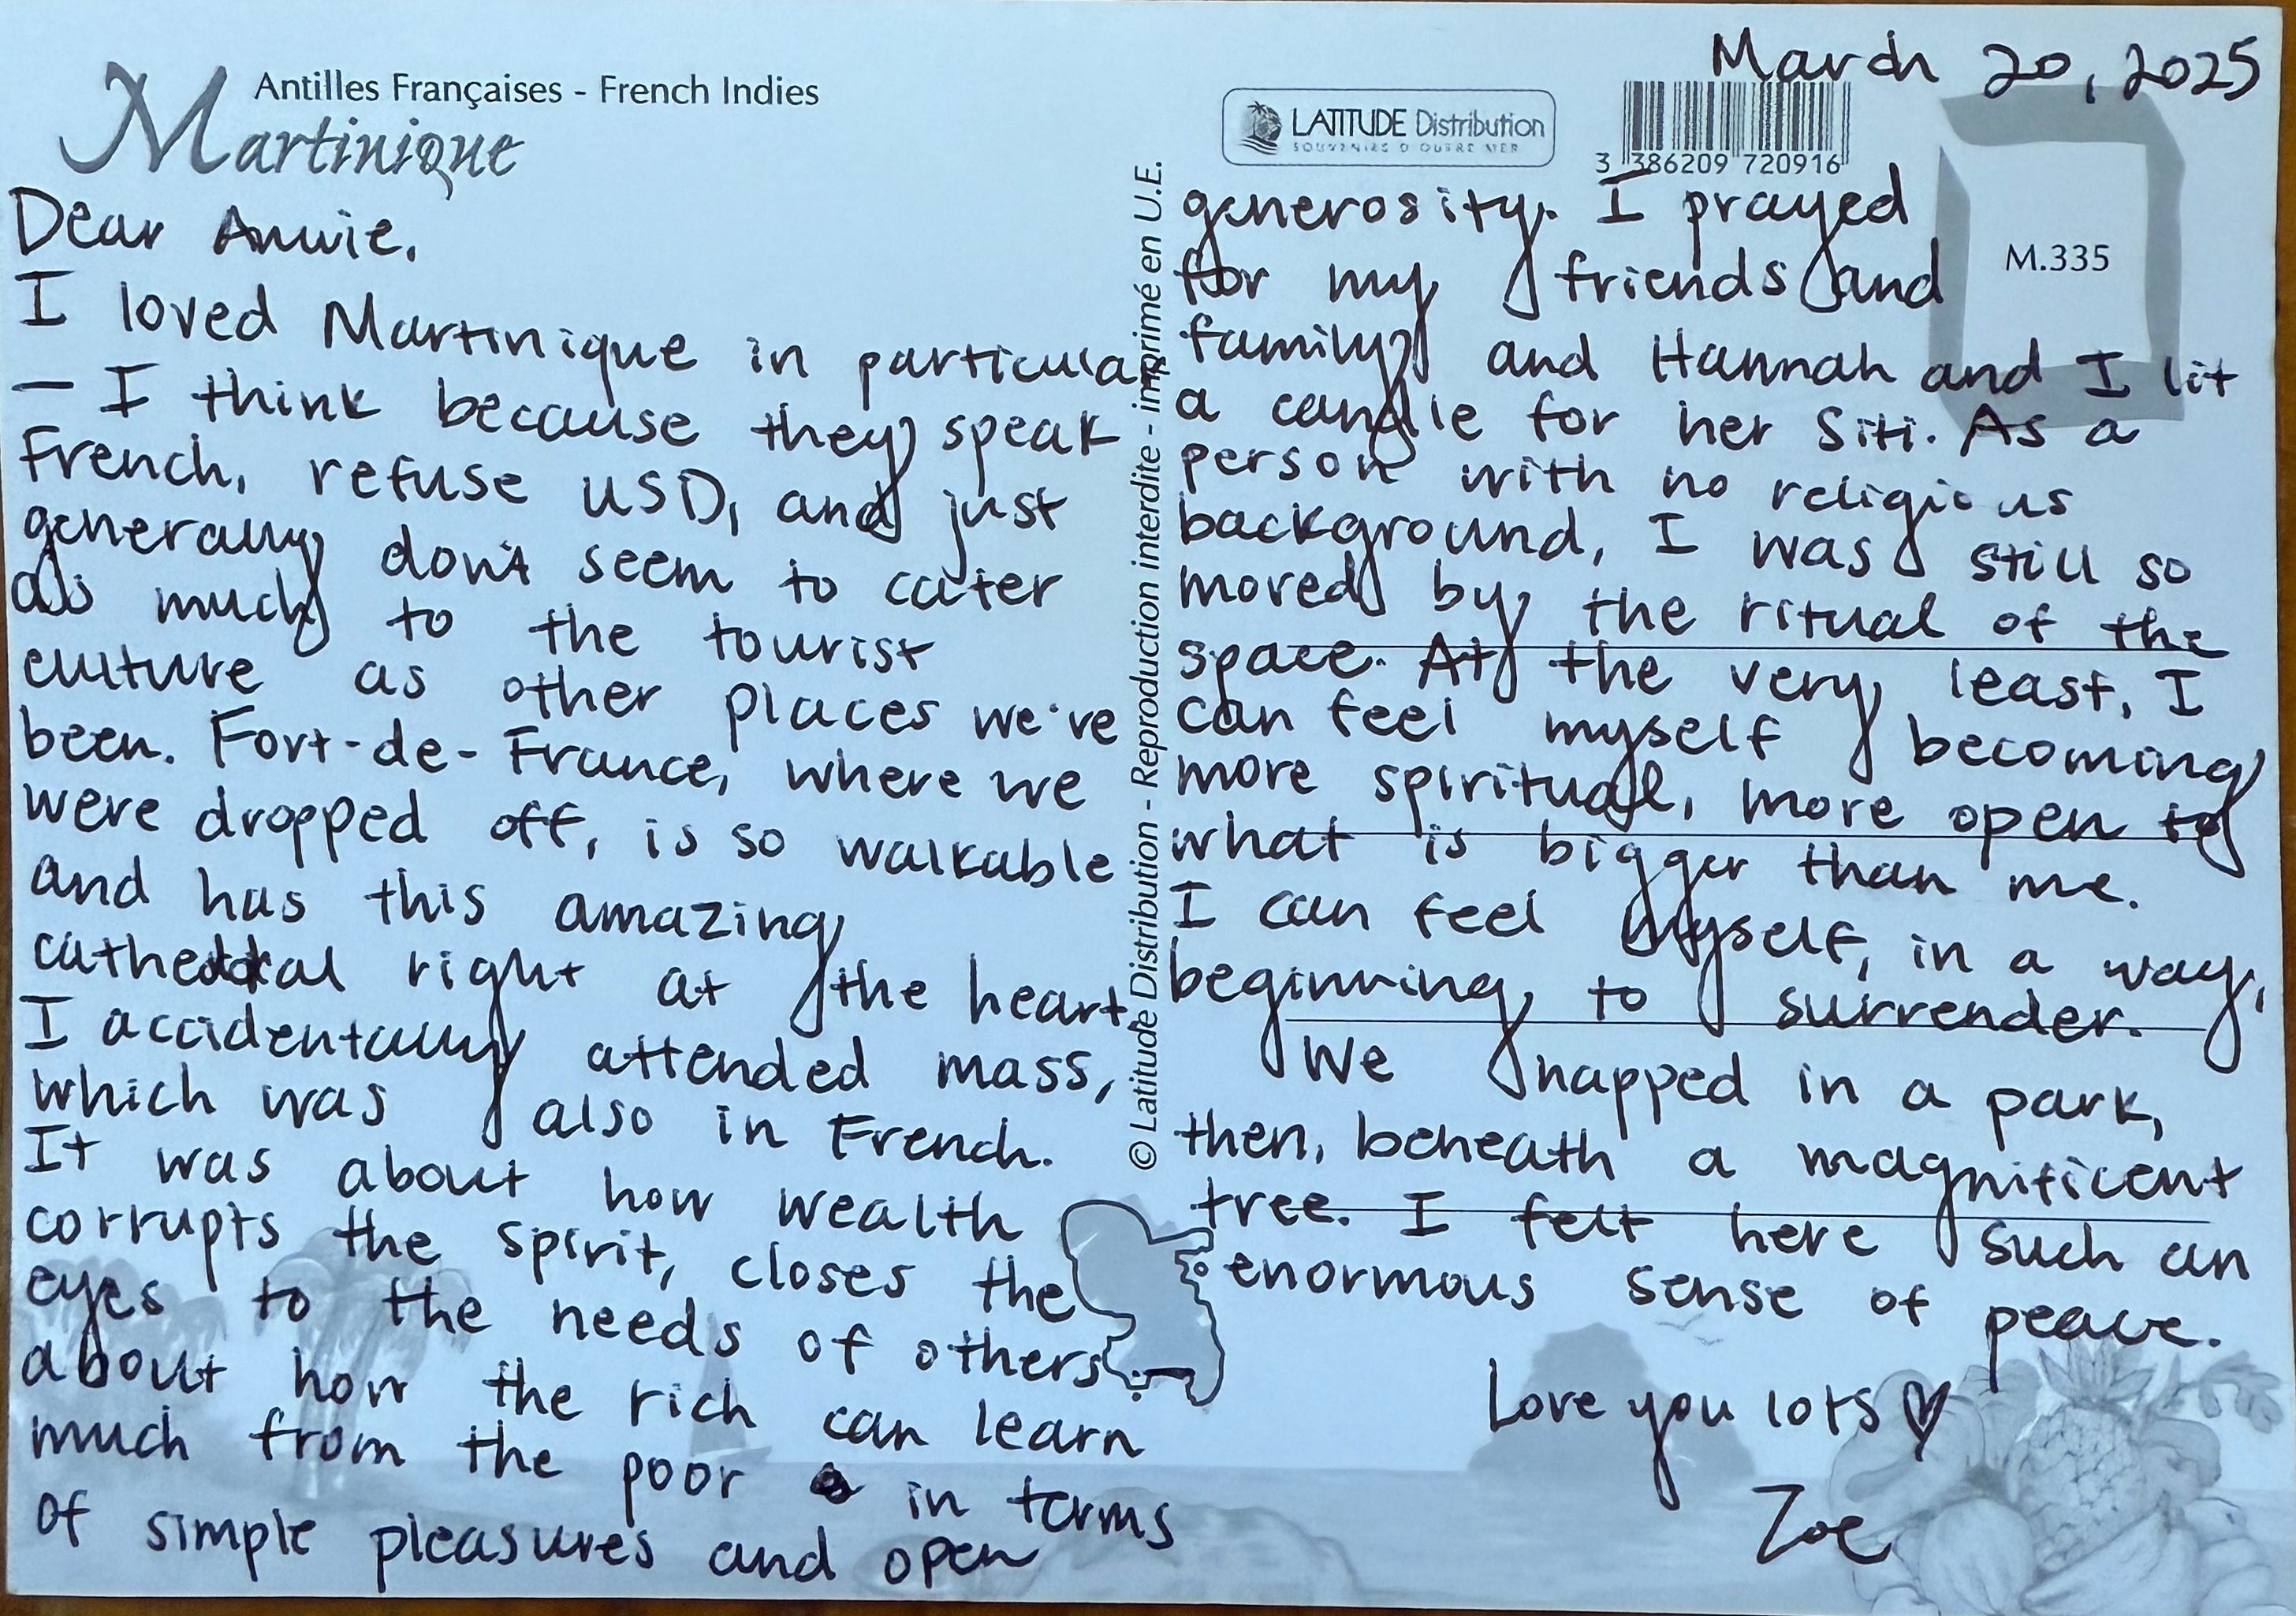 March 20, 2025
Antilles Françaises - French Indies
Martinique
LATITUDE Distribution
SOUVENIRS D'OUTRE MER
3 386209 720916
M.335
Dear Annie,
I loved Martinique in particular
— I think because they speak
French, refuse USD, and just
generally don't seem to cater
as much to the tourist
culture as other places we've
been. Fort-de-France, where we
were dropped off, is so walkable
and has this amazing
cathedral right at the heart.
I accidentally attended mass,
which was also in French.
It was about how wealth
corrupts the spirit, closes the
eyes to the needs of others,
about how the rich can learn
much from the poor in terms
of simple pleasures and open
© Latitude Distribution - Reproduction interdite - imprimé en U.E.
generosity. I prayed
for my friends and
family, and Hannah and I lit
a candle for her Siti. As a
person with no religious
background, I was still so
moved by the ritual of the
space. At the very least, I
can feel myself becoming
more spiritual, more open to
what is bigger than me.
I can feel myself, in a way,
beginning to surrender.
We napped in a park,
then, beneath a magnificent
tree. I felt here such an
enormous sense of peace.
Love you lots ♡
Zoe